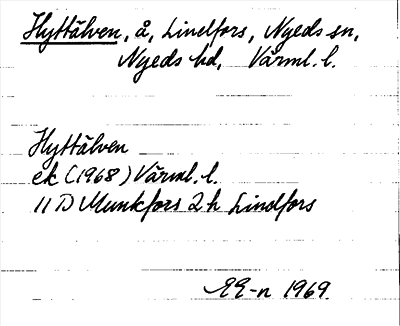 Hyttälven, å, Lindfors, Nyeds sn,
Nyeds hd, Värml. l.
Hyttälven
ek (1968) Värml. l.
11 D Munkfors 2 h Lindfors
EE-n 1969.